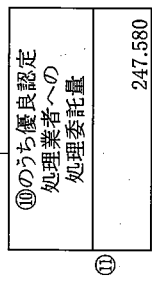 ⑩のうち優良認定
処理業者への
処理委託量
⑪
247.580